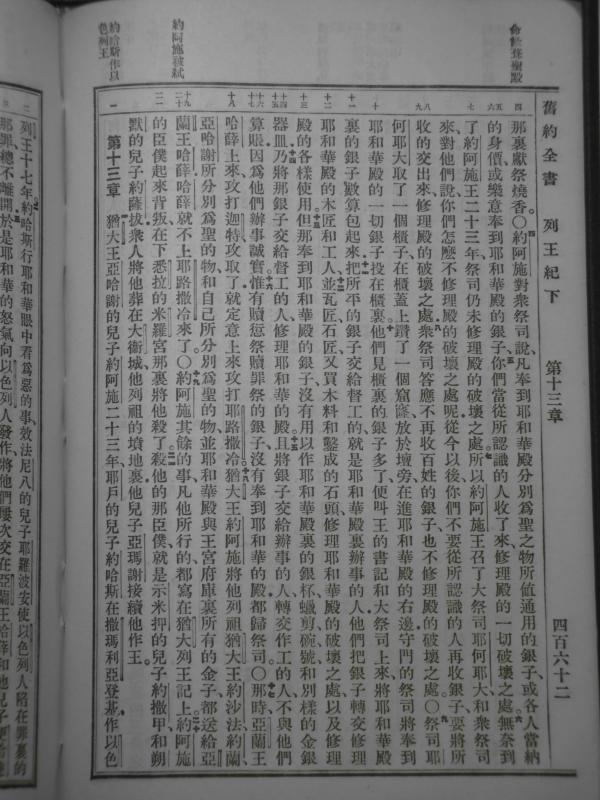 舊約全書 列王紀下 第十三章 四百六十二
命修葺聖殿
約阿施被弒
約哈斯作以色列王
那裏獻祭燒香○約阿施對衆祭司說凡奉到耶和華殿分別爲聖之物所值通用的銀子或各人當納
的身價或樂意奉到耶和華殿的銀子你們當從所認識的人收了來修理殿的一切破壞之處無奈到
了約阿施王二十三年祭司仍未修理殿的破壞之處所以約阿施王召了大祭司耶何耶大和衆祭司
來對他們說你們怎麼不修理殿的破壞之處呢從今以後你們不要從所認識的人再收銀子要將所
收的交出來修理殿的破壞之處衆祭司答應不再收百姓的銀子也不修理殿的破壞之處○祭司耶
何耶大取了一個櫃子在櫃蓋上鑽了一個窟窿放於壇旁在進耶和華殿的右邊守門的祭司將奉到
耶和華殿的一切銀子投在櫃裏他們見櫃裏的銀子多了便叫王的書記和大祭司上來將耶和華殿
裏的銀子數算包起來把所平的銀子交給督工的就是耶和華殿裏辦事的人他們把銀子轉交修理
耶和華殿的木匠和工人並瓦匠石匠又買木料和鑿成的石頭修理耶和華殿的破壞之處以及修理
殿的各樣使用但那奉到耶和華殿的銀子沒有用以作耶和華殿裏的銀杯蠟剪碗號和別樣的金銀
器皿乃將那銀子交給督工的人修理耶和華的殿且將銀子交給辦事的人轉交作工的人不與他們
算賬因爲他們辦事誠實惟有贖愆祭贖罪祭的銀子沒有奉到耶和華的殿都歸祭司○那時亞蘭王
哈薛上來攻打迦特攻取了就定意上來攻打耶路撒冷猶大王約阿施將他列祖猶大王約沙法約蘭
亞哈謝所分別爲聖的物和自己所分別爲聖的物並耶和華殿與王宮府庫裏所有的金子都送給亞
蘭王哈薛哈薛就不上耶路撒冷來了○約阿施其餘的事凡他所行的都寫在猶大列王記上約阿施
的臣僕起來背叛在下悉拉的米羅宮那裏將他殺了殺他的那臣僕就是示米押的兒子約撒甲和朔
默的兒子約薩拔衆人將他葬在大衛城他列祖的墳地裏他兒子亞瑪謝接續他作王
第十三章 猶大王亞哈謝的兒子約阿施二十三年耶戶的兒子約哈斯在撒瑪利亞登基作以色
列王十七年約哈斯行耶和華眼中看爲惡的事效法尼八的兒子耶羅波安使以色列人陷在罪裏的
那罪總不離開於是耶和華的怒氣向以色列人發作將他們屢次交在亞蘭王哈薛和他兒子